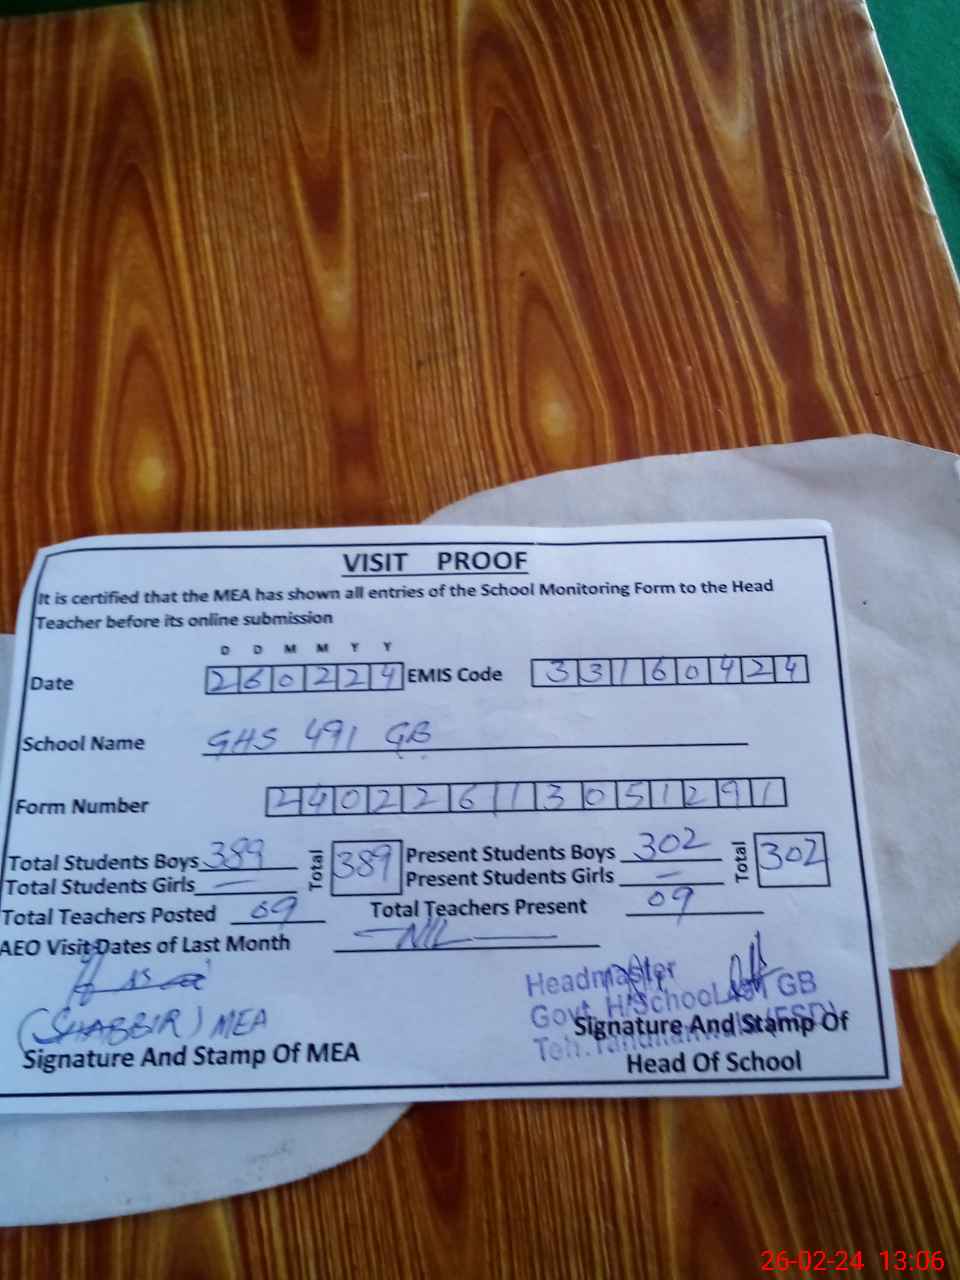 VISIT PROOF
It is certified that the MEA has shown all entries of the School Monitoring Form to the Head
Teacher before its online submission
D D M M Y Y
Date 260224 EMIS Code 33160424
School Name GHS 491 GB
Form Number 24022613051291
Total Students Boys 389 Total 389 Present Students Boys 302 Total 302
Total Students Girls — Present Students Girls —
Total Teachers Posted 09 Total Teachers Present 09
AEO Visit Dates of Last Month — NIL —
(SHABBIR) MEA
Signature And Stamp Of MEA
Headmaster
Govt. H/School GB
Signature And Stamp Of
Teh.
Head Of School
26-02-24 13:06